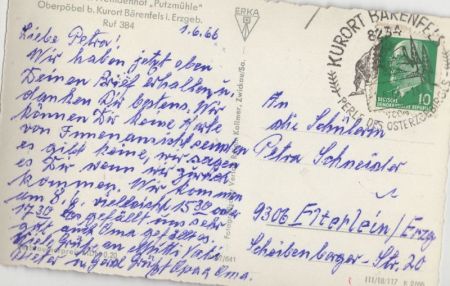 Fremdenhof „Putzmühle"
Oberpöbel b. Kurort Bärenfels i. Erzgeb.
Ruf 384
1.6.66
Liebe Petra!
Wir haben jetzt eben
Deinen Brief erhalten u.
danken Dir bestens. Wir
können Dir keine Karte
von Innenansicht senden
es gibt keine, wir sagen
es Dir wenn wir zurück
kommen. Wir kommen
am 8.6. vielleicht 15³⁰ oder
17³⁰ Es gefällt uns sehr
gut auch Oma gefällt es.
Viele Grüße an Mutti, Vati
Dieter u. Gerd Grüßt Opa u Oma.
ERKA
Kollmer, Zwickau/Sa.
KURORT BÄRENFELS
8234
PERLE DES OSTERZGEBIRGES
DEUTSCHE
DEMOKRATISCHE REPUBLIK
10
An
die Schülerin
Petra Schneider
9306 Elterlein/Erzg
Scheibenberger-Str. 20
III/18/117